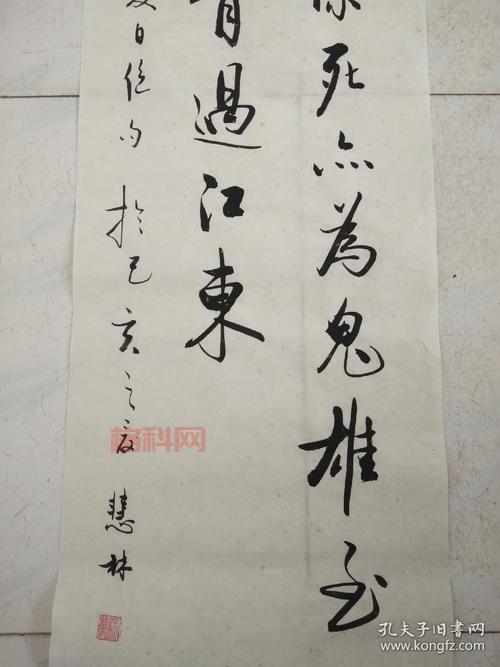 死亦為鬼雄至
肯過江東
夏日絕句 於己亥之夏 慧林
格科网
孔夫子旧书网
kongfz.com